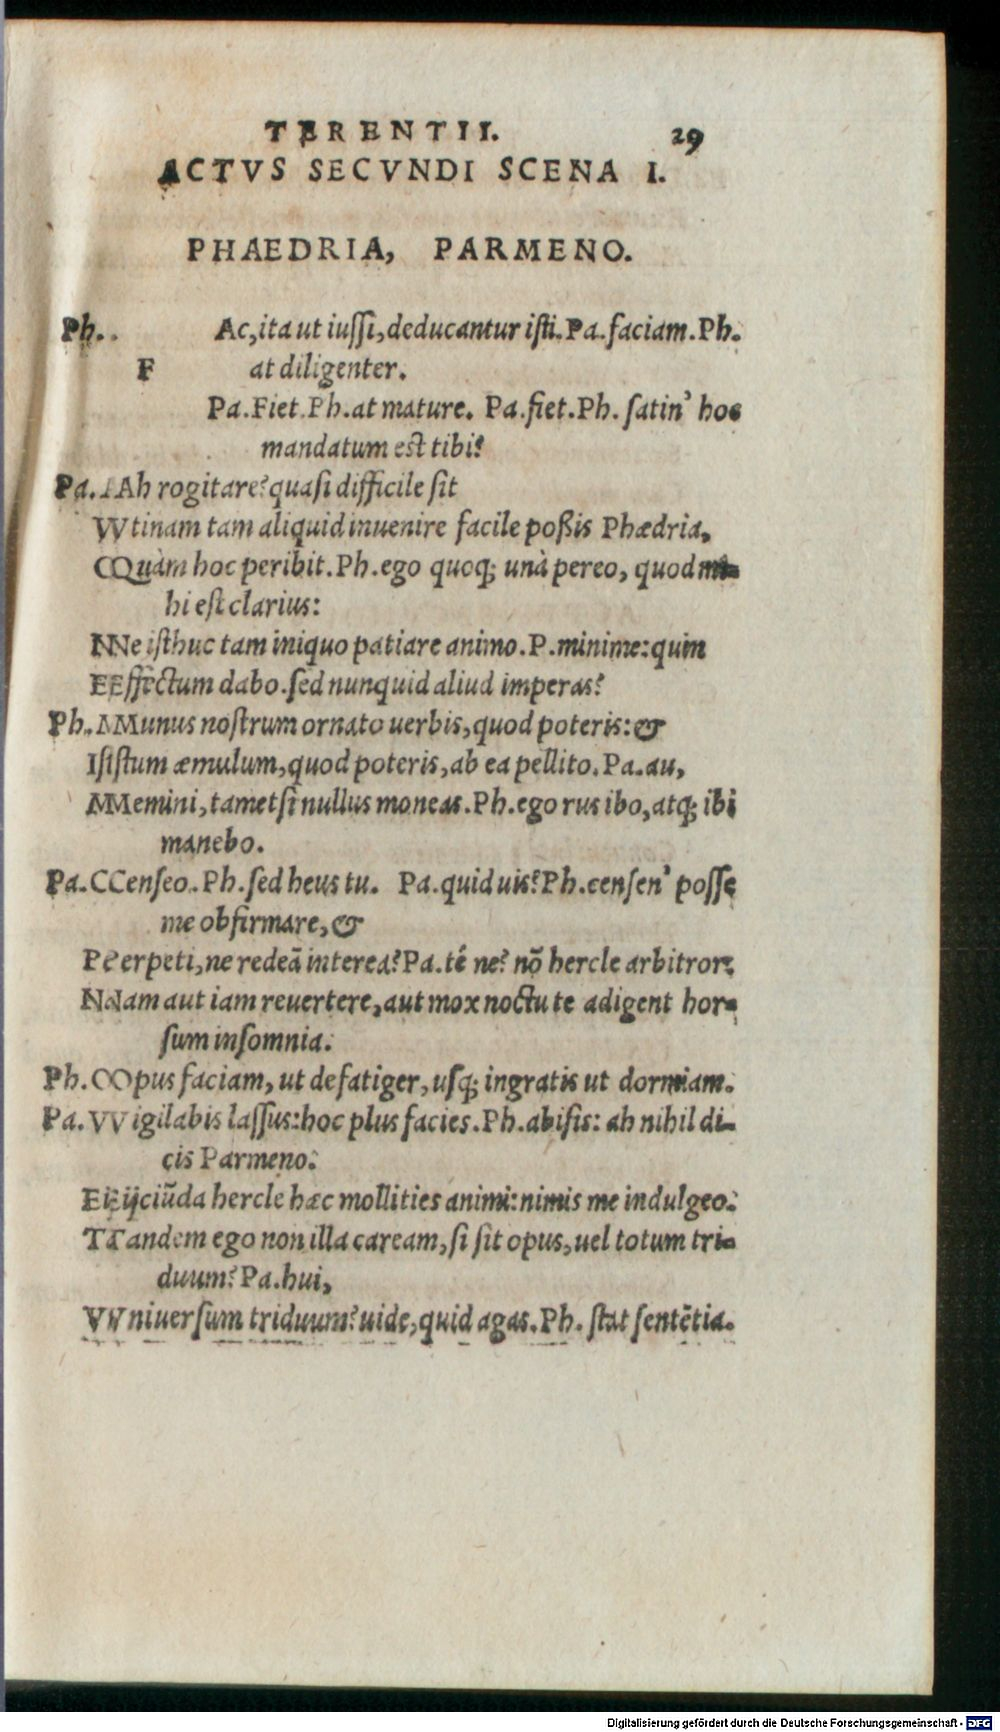 TERENTII. 29
ACTVS SECVNDI SCENA I.
PHAEDRIA, PARMENO.
Ph.. Ac, ita ut iussi, deducantur isti. Pa. faciam. Ph.
F at diligenter.
Pa. Fiet. Ph. at mature. Pa. fiet. Ph. satin' hoc
mandatum est tibi?
Pa. AAh rogitare? quasi difficile sit
VVtinam tam aliquid inuenire facile poßis Phædria,
QQuàm hoc peribit. Ph. ego quoq; unà pereo, quod mi-
hi est clarius:
NNe isthuc tam iniquo patiare animo. P. minime: quin
EEffectum dabo. sed nunquid aliud imperas?
Ph. MMunus nostrum ornato uerbis, quod poteris: &
Isistum æmulum, quod poteris, ab ea pellito. Pa. au,
MMemini, tametsi nullus moneas. Ph. ego rus ibo, atq; ibi
manebo.
Pa. CCenseo. Ph. sed heus tu. Pa. quid uis? Ph. censen' posse
me obfirmare, &
PPerpeti, ne redeā interea? Pa. té ne? nō hercle arbitror:
NNam aut iam reuertere, aut mox noctu te adigent hor-
sum insomnia.
Ph. OOpus faciam, ut defatiger, usq; ingratis ut dormiam.
Pa. VVigilabis lassus: hoc plus facies. Ph. abisis: ah nihil di-
cis Parmeno.
EEijciūda hercle hæc mollities animi: nimis me indulgeo.
TTandem ego non illa caream, si sit opus, uel totum tri-
duum? Pa. hui,
VVniuersum triduum? uide, quid agas. Ph. stat sentētia.
Digitalisierung gefördert durch die Deutsche Forschungsgemeinschaft - DFG